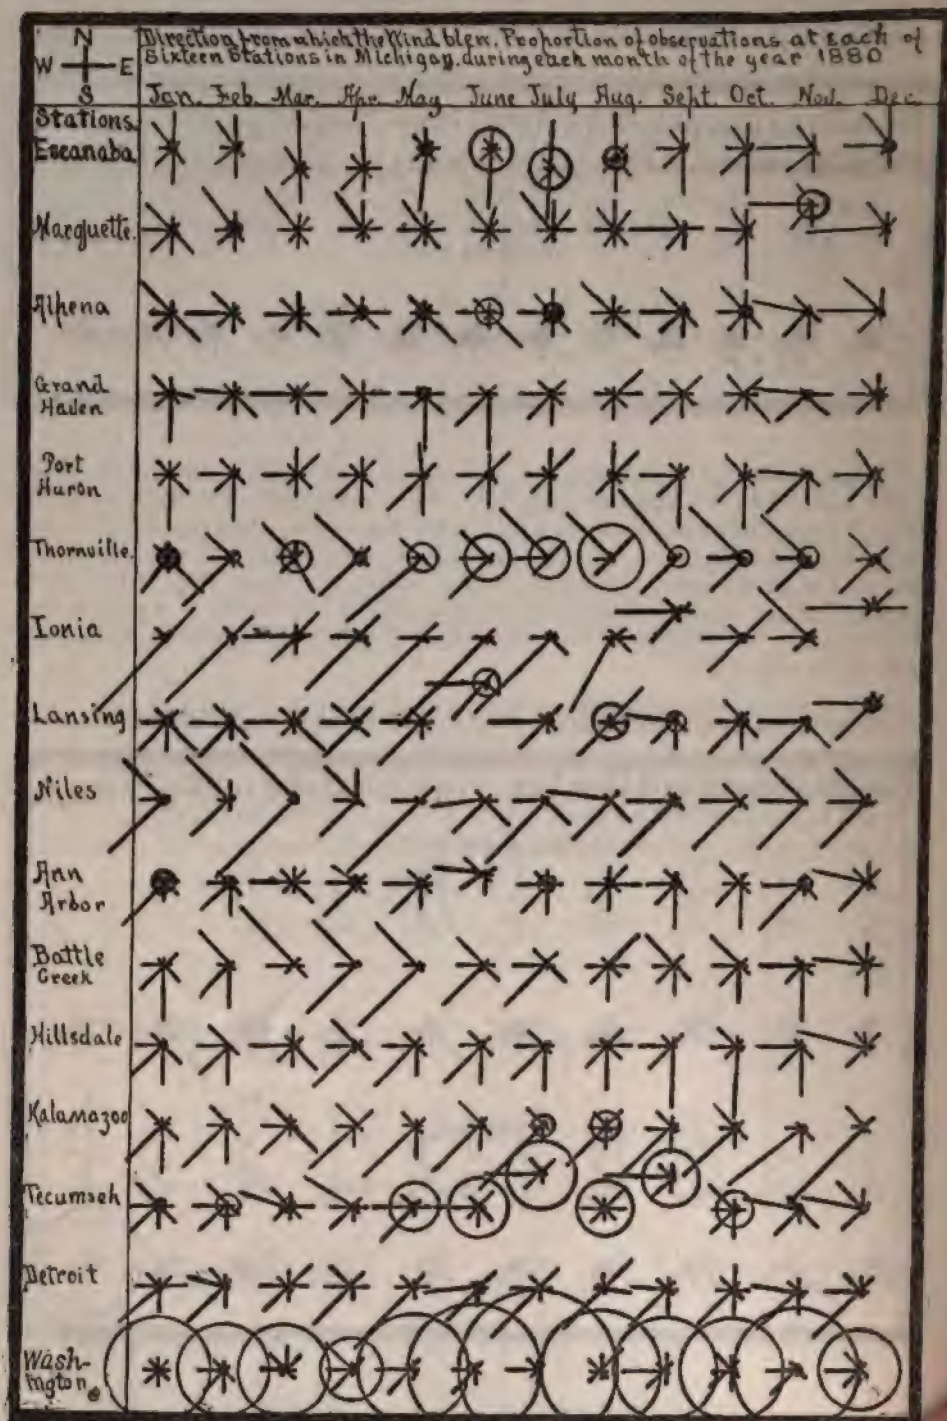 N
W E
S
Direction from which the Wind blew. Proportion of observations at each of
Sixteen Stations in Michigan, during each month of the year 1880
Jan. Feb. Mar. Apr. May June July Aug. Sept. Oct. Nov. Dec.
Stations.
Escanaba
Marquette.
Alpena
Grand
Haven
Port
Huron
Thornville.
Ionia
Lansing
Niles
Ann
Arbor
Battle
Creek
Hillsdale
Kalamazoo
Tecumseh
Detroit
Wash-
ington